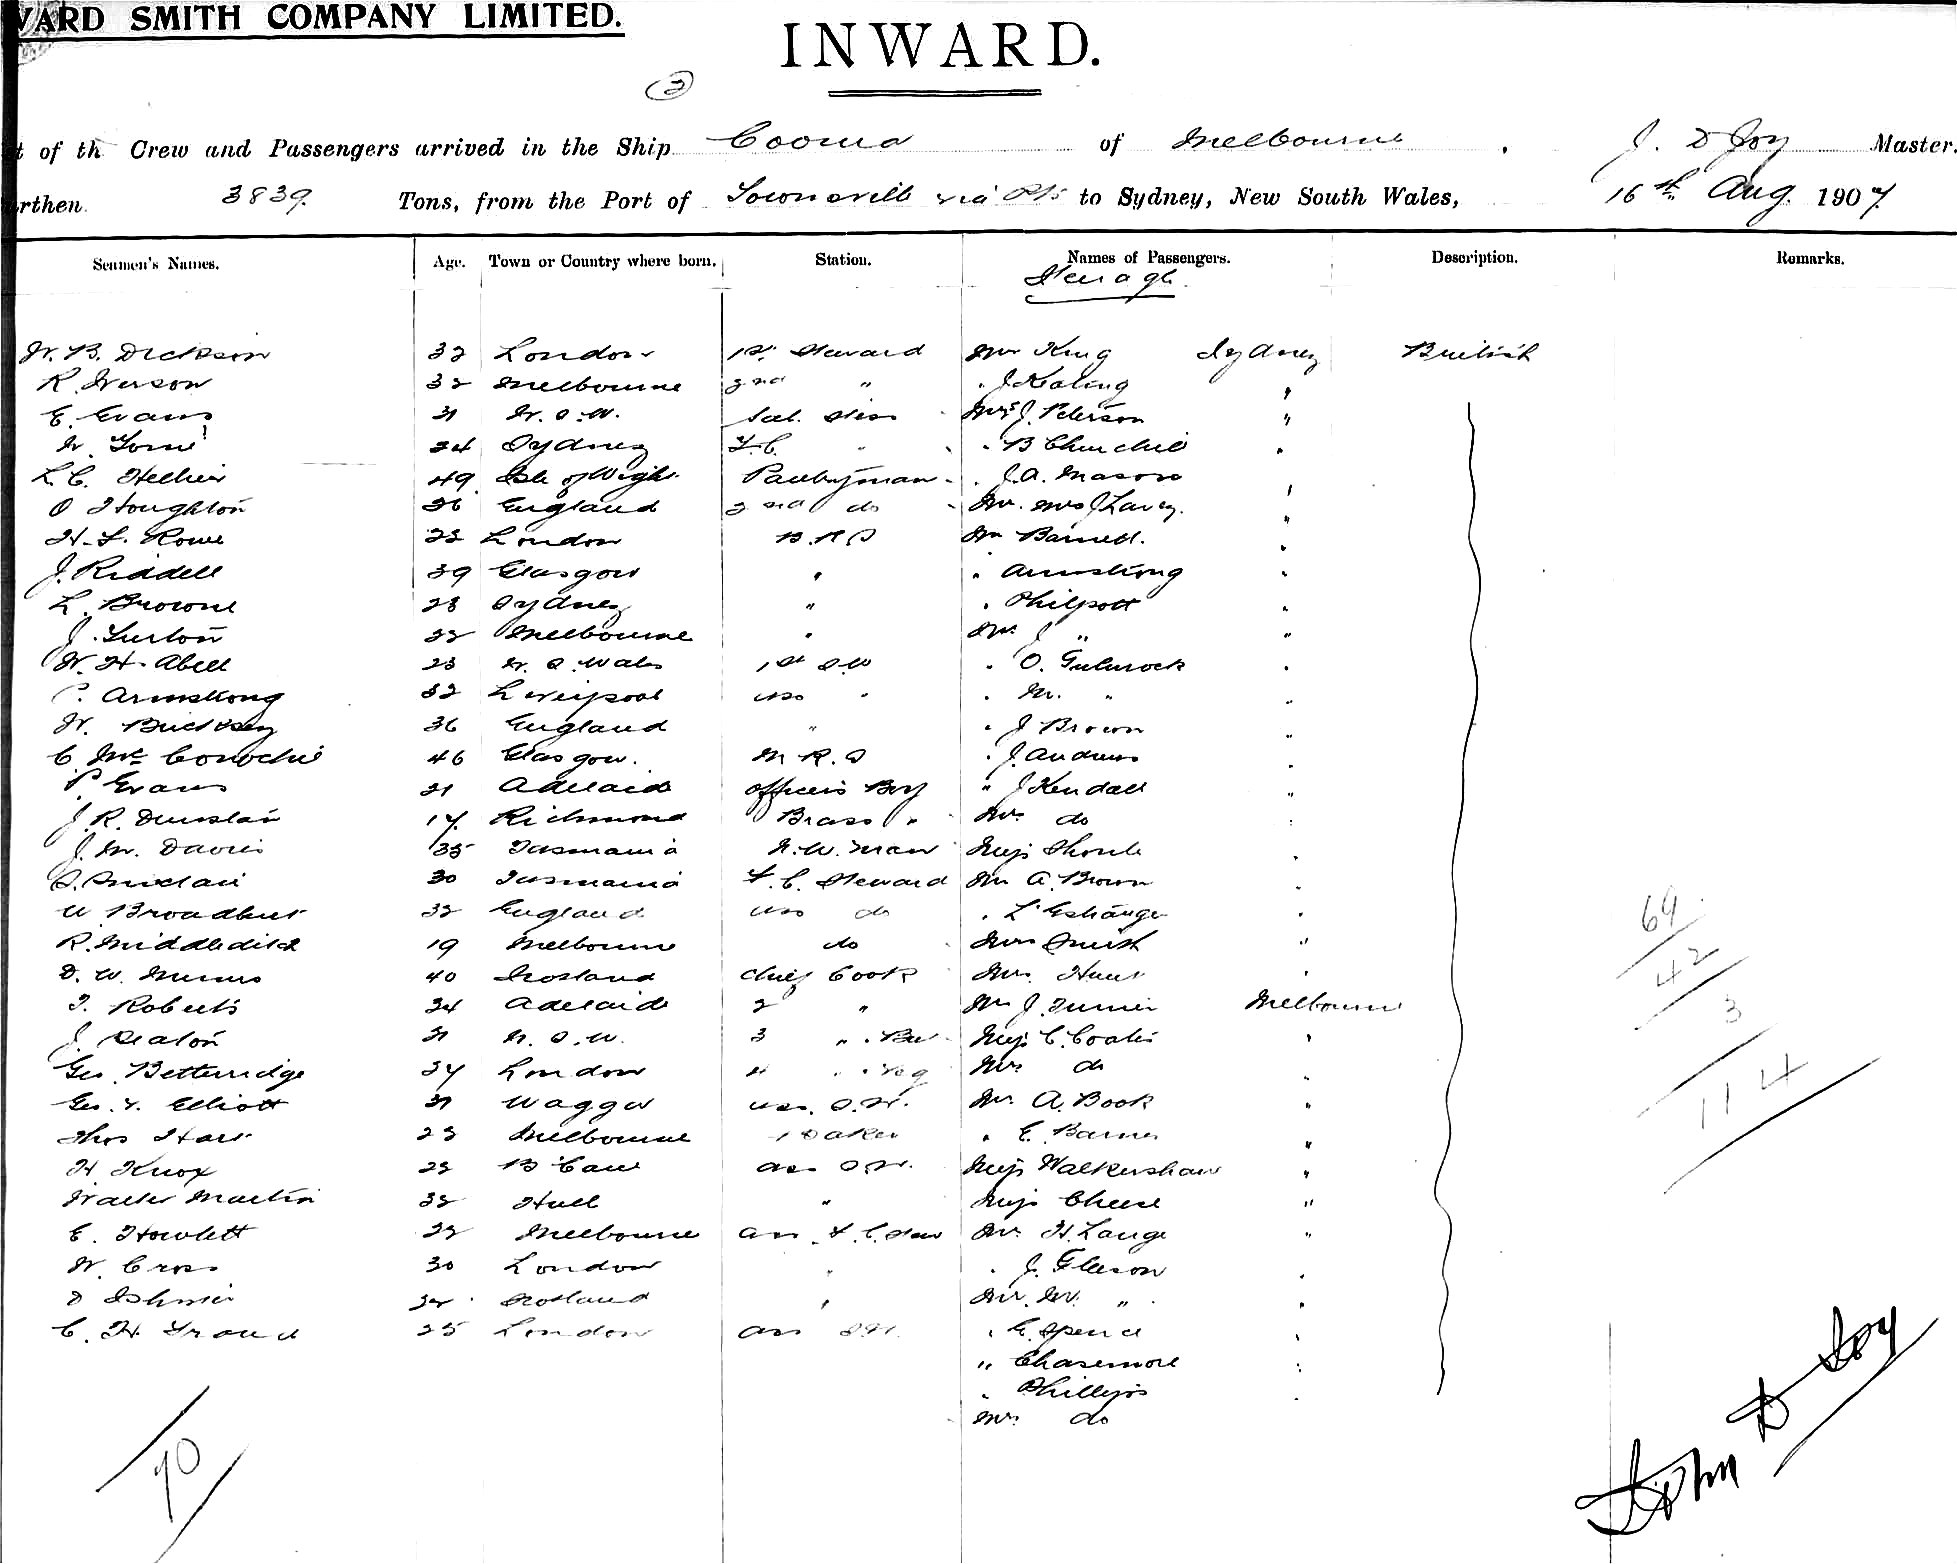 WARD SMITH COMPANY LIMITED.
INWARD.
2
t of th Crew and Passengers arrived in the Ship Cooma of Melbourne, J. D Joy Master,
rthen 3839 Tons, from the Port of Townsville via Pts to Sydney, New South Wales, 16th Aug. 1907.
Seamen's Names. Age. Town or Country where born. Station. Names of Passengers. Description. Remarks.
W. B. Dickson 32 London 1st. Steward King Sydney British
R. 32 Melbourne 2nd " J Keating "
E. Evans 21 N. S. W. Sal. J. Peterson "
24 Sydney B Churchill "
L. C. Hellier 49 Isle of Wight Pantryman J. A. Mason
O Houghton 26 England 2nd do Mr. Mrs J Lavey. "
H. L. Rowe 22 London B. R S Mr Barnell. "
J. Riddell 39 Glasgow " " Armstrong "
L. Browne 23 Sydney " " Philpott "
J. Turton 22 Melbourne " J " "
W. H. Abell 23 N. S. Wales 1st S W " O. "
C. Armstrong 32 Liverpool " " M. " "
W. 36 England " " J Brown "
C. Mc Conochie 46 Glasgow. M R. S " J. Andrews "
P Evans 21 Adelaide Officers Boy " J Kendall "
J. R. Dunstan 17 Richmond Brass " Mrs do "
J. M. Davies 35 Tasmania N. W. man Miss "
S. Sinclair 30 Tasmania F. C. Steward Mr A. Brown "
W Broadhurst 32 England do " L "
R. Middleditch 19 Melbourne do Smith "
D. W. 40 Scotland Chief Cook Hunt "
T. Roberts 24 Adelaide 2 " Mr J. Turner Melbourne
J. Seaton 21 N. S. W. 3 " Miss C. Coates "
Geo. Betteridge 27 London 4 " " Veg Mrs do "
Geo. F. Elliott 21 Wagga S. W. Mr A. Book "
Thos Hart 23 Melbourne Baker " E. Barnes "
H. Knox 22 ass S. W. Miss Walkershaw "
Walter Martin 32 Hull " Miss Cheese "
E. Howlett 22 Melbourne ass F. C. Stew Mr. H. Lange "
W. Cross 30 London " " J. Gleeson "
D 32 Scotland " "
C. H. 25 London ass " E. Spence "
" Chasemore "
" Phillips "
Mrs do
64
42
3
114
70
John D Joy